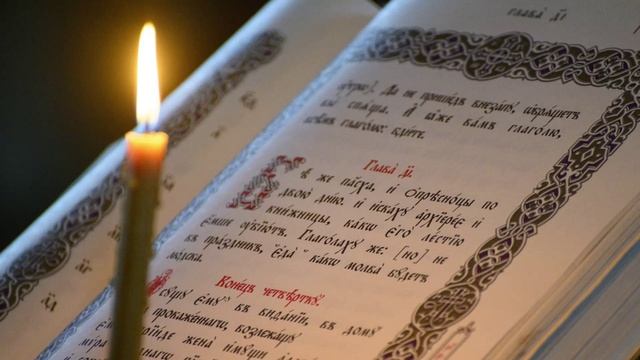 Глава д҃і
утра). Да не пришедъ внезапꙋ, ѡбрящетъ
вы спѧща. И ꙗже вамъ глаголю,
всѣмъ глаголю: бдите.
Глава д҃і.
Бѣ же пасха, и Опрѣсноцы по
двою дню. и искахꙋ архїерее и
книжницы, какѡ єго лестїю
емше ꙋбїютъ. Глаголахꙋ же: [но] не
въ праздникъ, "еда" какѡ молва бꙋдетъ
людска.
Конецъ четверткꙋ.
сꙋщꙋ емꙋ въ виѳанїи, въ домꙋ
прокаженнаго, возлежащꙋ
прїиде жена имꙋщи
мѵра